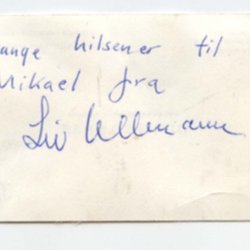 ange hilsener til
Mikael fra
Liv Ullmann